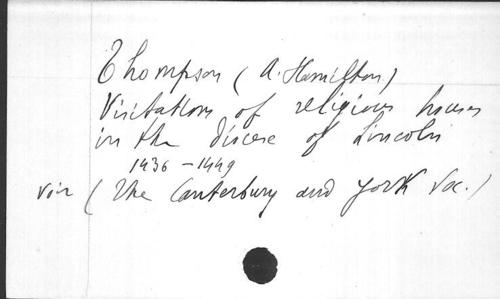 Thompson (A. Hamilton)
Visitations of religious houses
in the diocese of Lincoln
1436 - 1449
voir (The Canterbury and York Soc.)